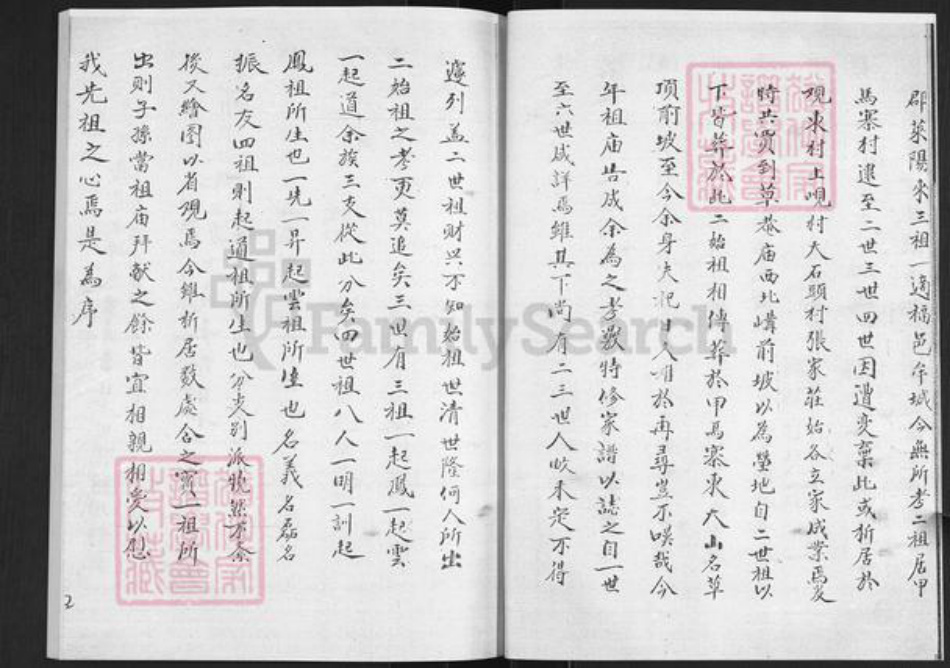 郡萊陽來三祖一適福邑牟城今無所考二祖居甲
馬寨村逮至二世三世四世因遭变棄此或析居於
峴夾村上峴村大石頭村張家莊始各立家成業焉爰
時共買到草菴庙西北嶹前坡以為塋地自二世祖以
下皆葬於此二始祖相傳葬於甲馬寨夾大山名草
項前坡至今余身失祀日人难於再尋豈不嘆哉今
年祖庙告成余為之孝嚴特修家譜以誌之自一世
至六世咸詳焉維其下尚有二三世人畋未定不得
遽列盖二世祖財兴不知始祖世清世隆何人所出
二始祖之孝更莫追矣三世有三祖一起鳳一起雲
一起道余族三支從此分矣四世祖八人一明一訓起
鳳祖所生也一先一昇起雲祖所生也名義名磊名
振名友四祖則起道祖所生也分支别派犹恐不余
後又繪图以省观焉今雖析居数處合之實一祖所
出則子孫當祖庙拜献之餘皆宜相親相愛以慰
我先祖之心焉是為序
2
FamilySearch